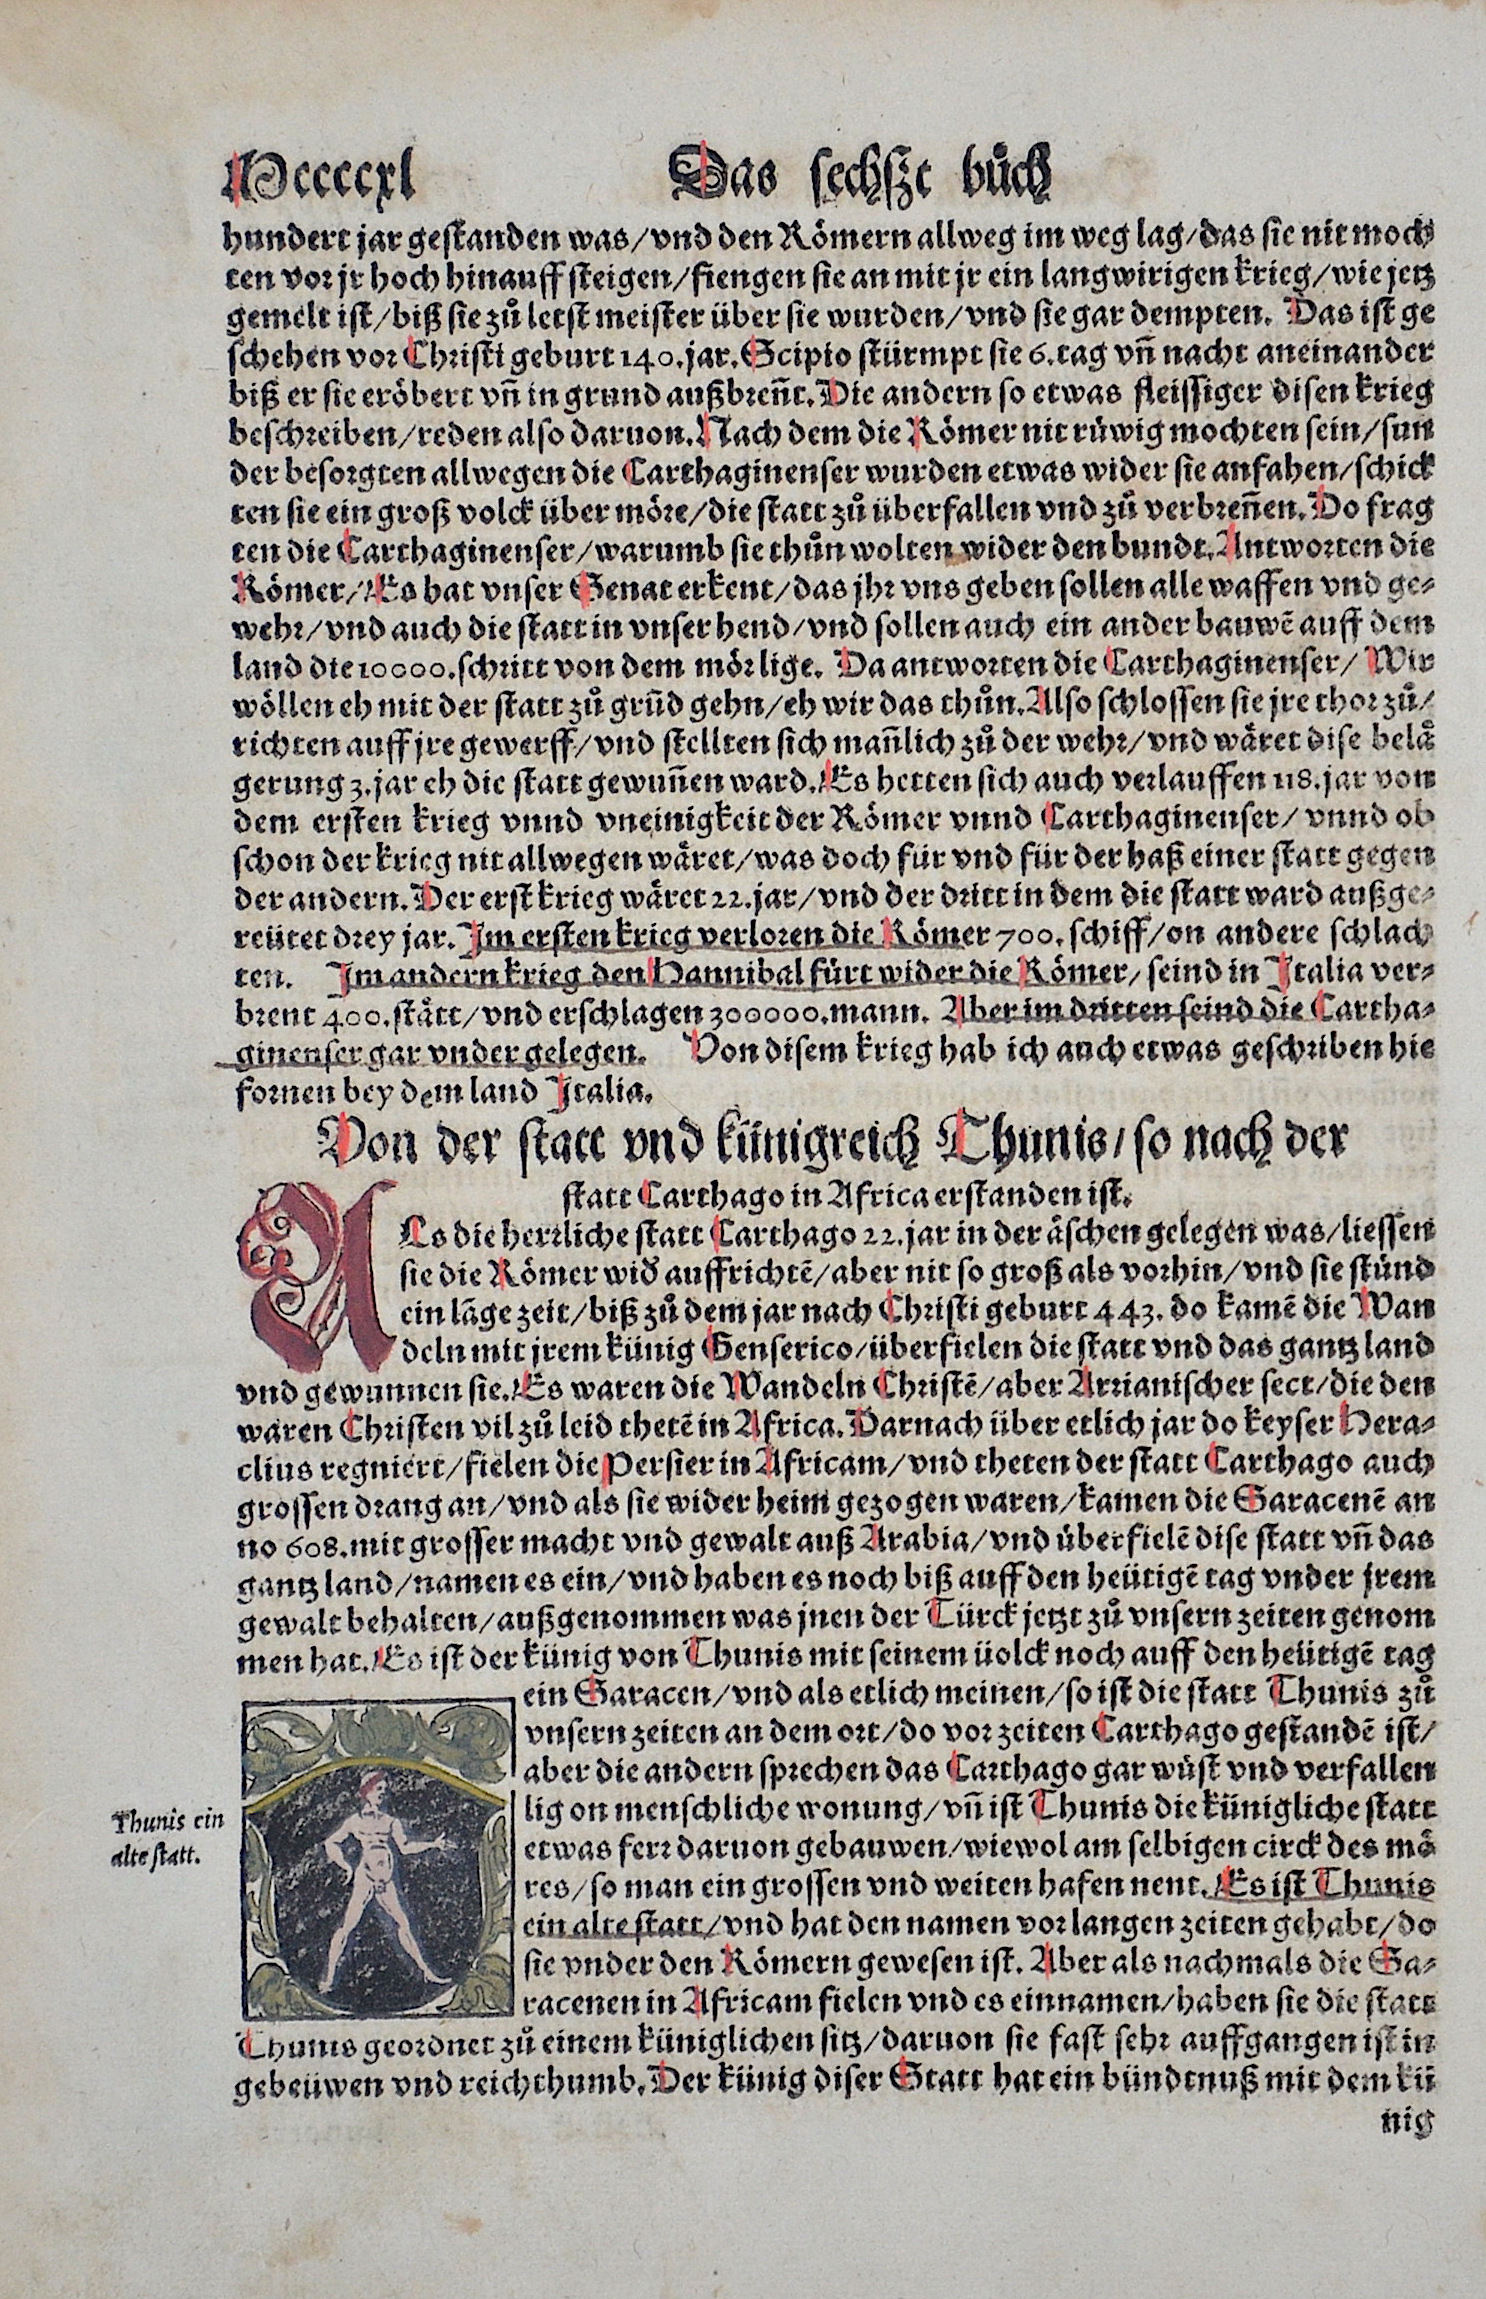 Mccccxl
Das sechszt bůch
hundert jar gestanden was/vnd den Römern allweg im weg lag/das sie nit moch
ten vor jr hoch hinauff steigen/fiengen sie an mit jr ein langwirigen krieg/wie jetz
gemelt ist/biß sie zů letst meister über sie wurden/vnd sie gar dempten. Das ist ge
schehen vor Christi geburt 140.jar. Scipio stürmpt sie 6.tag vñ nacht aneinander
biß er sie eröbert vñ in grund außbreñt. Die andern so etwas fleissiger disen krieg
beschreiben/reden also daruon. Nach dem die Römer nit rüwig mochten sein/sun
der besorgten allwegen die Carthaginenser wurden etwas wider sie anfahen/schick
ten sie ein groß volck über möre/die statt zů überfallen vnd zů verbreñen. Do frag
ten die Carthaginenser/warumb sie thůn wolten wider den bundt. Antworten die
Römer/Es hat vnser Senat erkent/das jhr vns geben sollen alle waffen vnd ge-
wehr/vnd auch die statt in vnser hend/vnd sollen auch ein ander bauwẽ auff dem
land die 10000.schritt von dem mör lige. Da antworten die Carthaginenser/Wir
wöllen eh mit der statt zů grũd gehn/eh wir das thůn. Also schlossen sie jre thor zů/
richten auff jre gewerff/vnd stellten sich mañlich zů der wehr/vnd wäret dise belä
gerung 3.jar eh die statt gewuñen ward. Es hetten sich auch verlauffen 118.jar von
dem ersten krieg vnnd vneinigkeit der Römer vnnd Carthaginenser/vnnd ob
schon der krieg nit allwegen wäret/was doch für vnd für der haß einer statt gegen
der andern. Der erst krieg wäret 22.jar/vnd der dritt in dem die statt ward außge-
reütet drey jar. Im ersten krieg verloren die Römer 700.schiff/on andere schlach
ten. Im andern krieg den Hannibal fürt wider die Römer/seind in Italia ver-
brent 400.stätt/vnd erschlagen 300000.mann. Aber im dritten seind die Cartha-
ginenser gar vnder gelegen. Von disem krieg hab ich auch etwas geschriben hie
fornen bey dem land Italia.
Von der statt vnd künigreich Thunis/so nach der
statt Carthago in Africa erstanden ist.
ALs die herrliche statt Carthago 22.jar in der äschen gelegen was/liessen
sie die Römer wiď auffrichtẽ/aber nit so groß als vorhin/vnd sie stůnd
ein lãge zeit/biß zů dem jar nach Christi geburt 443. do kamẽ die Wan
deln mit jrem künig Genserico/überfielen die statt vnd das gantz land
vnd gewunnen sie. Es waren die Wandeln Christẽ/aber Arrianischer sect/die den
waren Christen vil zů leid thetẽ in Africa. Darnach über etlich jar do keyser Hera-
clius regniert/fielen die Persier in Africam/vnd theten der statt Carthago auch
grossen drang an/vnd als sie wider heim gezogen waren/kamen die Saracenẽ an
no 608.mit grosser macht vnd gewalt auß Arabia/vnd überfielẽ dise statt vñ das
gantz land/namen es ein/vnd haben es noch biß auff den heütigẽ tag vnder jrem
gewalt behalten/außgenommen was jnen der Türck jetzt zů vnsern zeiten genom
men hat. Es ist der künig von Thunis mit seinem üolck noch auff den heütigẽ tag
ein Saracen/vnd als etlich meinen/so ist die statt Thunis zů
vnsern zeiten an dem ort/do vor zeiten Carthago gestandẽ ist/
aber die andern sprechen das Carthago gar wüst vnd verfallen
lig on menschliche wonung/vñ ist Thunis die künigliche statt
etwas ferr daruon gebauwen/wiewol am selbigen circk des mö
res/so man ein grossen vnd weiten hafen nent. Es ist Thunis
ein alte statt/vnd hat den namen vor langen zeiten gehabt/do
sie vnder den Römern gewesen ist. Aber als nachmals die Sa-
racenen in Africam fielen vnd es einnamen/haben sie die statt
Thunis geordnet zů einem küniglichen sitz/daruon sie fast sehr auffgangen ist in
gebeüwen vnd reichthumb. Der künig diser Statt hat ein bündtnuß mit dem kü
nig
Thunis ein
alte statt.